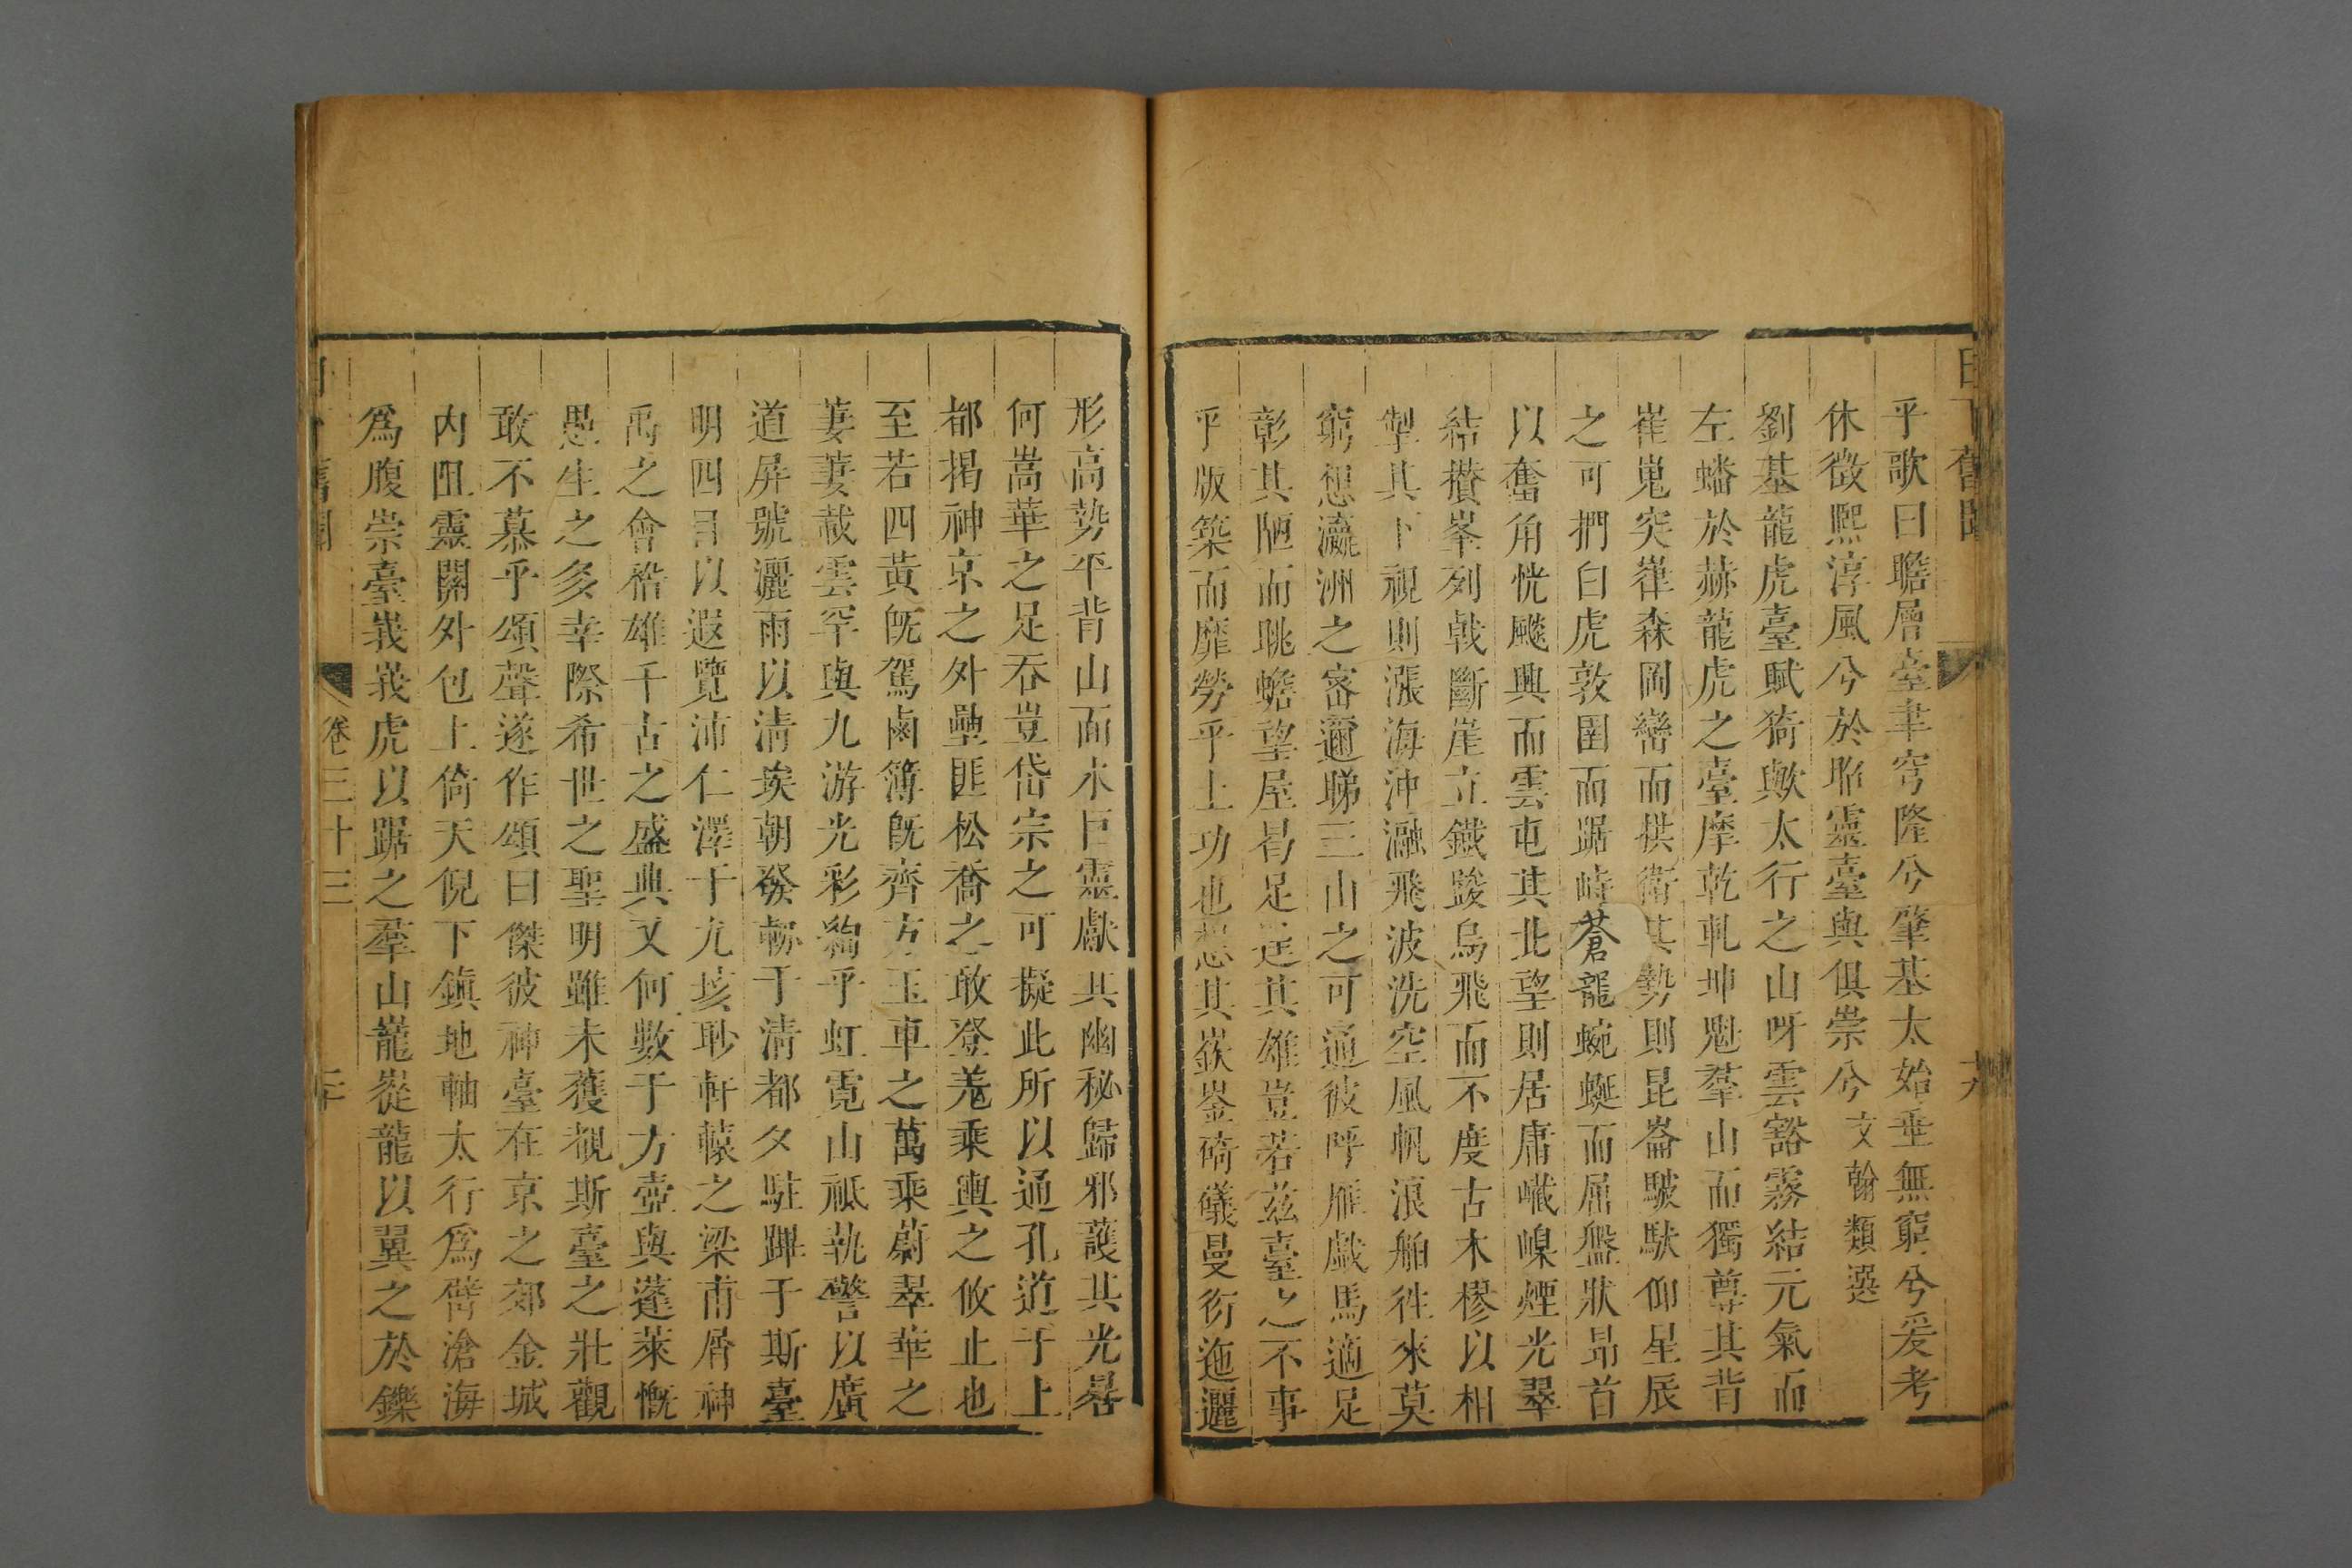 乎歌曰瞻層臺聿穹隆兮肇基太始垂無窮兮爰考
休徵熙淳風兮於昭靈臺與俱崇兮文翰類選
劉基龍虎臺賦猗歟太行之山呀雲豁霧結元氣而
左蟠於赫龍虎之臺摩乾軋坤魁羣山而獨尊其背
崔嵬突嵂森岡巒而拱衛其勢則昆崙駊駃仰星辰
之可捫白虎敦圉而踞峙蒼龍蜿蜒而屈盤狀昂首
以奮角恍飈興而雲屯其北望則居庸嶻嵲煙光翠
結攢峯列戟斷崖立鐵跋烏飛而不度古木樛以相
掣其下視則漲海沖瀜飛波洗空風帆浪舶往來莫
窮想瀛洲之密邇睇三山之可通彼呼雁戲馬適足
彰其陋而眺蟾望屋曷足逞其雄豈若茲臺之不事
乎版築而靡勞乎土功也想其嶔崟碕礒曼衍迤邐
形高勢平背山面水巨靈獻其幽秘歸邪護其光晷
何嵩華之足吞豈岱宗之可擬此所以通孔道于上
都揭神京之外壘匪松喬之敢登羗乘輿之攸止也
至若四黃旣駕鹵簿旣齊方玉車之萬乘蔚翠華之
萋萋載雲罕與九游光彩絢乎虹霓山祗執警以廣
道屏號灑雨以清埃朝發軔于清都夕駐蹕于斯臺
明四目以遐覽沛仁澤于九垓眇軒轅之梁甫屑神
禹之會稽雄千古之盛典又何數于方壺與蓬萊慨
愚生之多幸際希世之聖明雖未獲覩斯臺之壯觀
敢不慕乎頌聲遂作頌曰傑彼神臺在京之郊金城
內阻靈關外包上倚天倪下鎭地軸太行爲脊滄海
爲腹崇臺峩峩虎以踞之羣山巃嵸龍以翼之於鑠
卷三十三